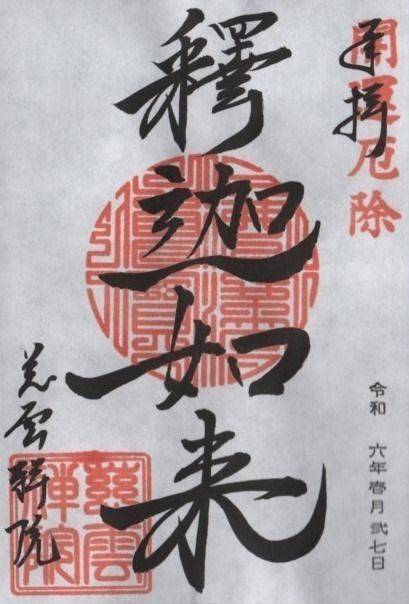 開運厄除
奉拝
釋迦如来
令和 六年壱月弐七日
慈雲禅院
慈雲禅院